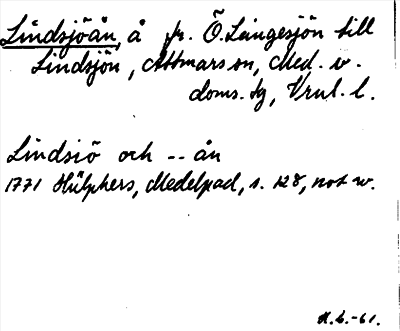 Lindsjöån, å fr. Ö. Leingesjön till
Lindsjön, Attmars sn, Med. v.
doms. tg, Vrnl. l.
Lindsiö och -- ån
1771 Hülphers, Medelpad, s. 128, not w.
H.L.-61.